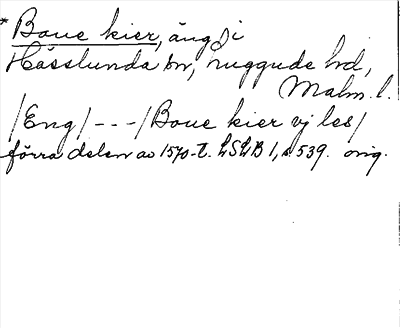 *Boue kier, äng i
Hässlunda sn, Luggude hd,
Malm. l.
/Eng/---/Boue kier vj les/
förra delen av 1570-t. LSLB 1, s 539. orig.